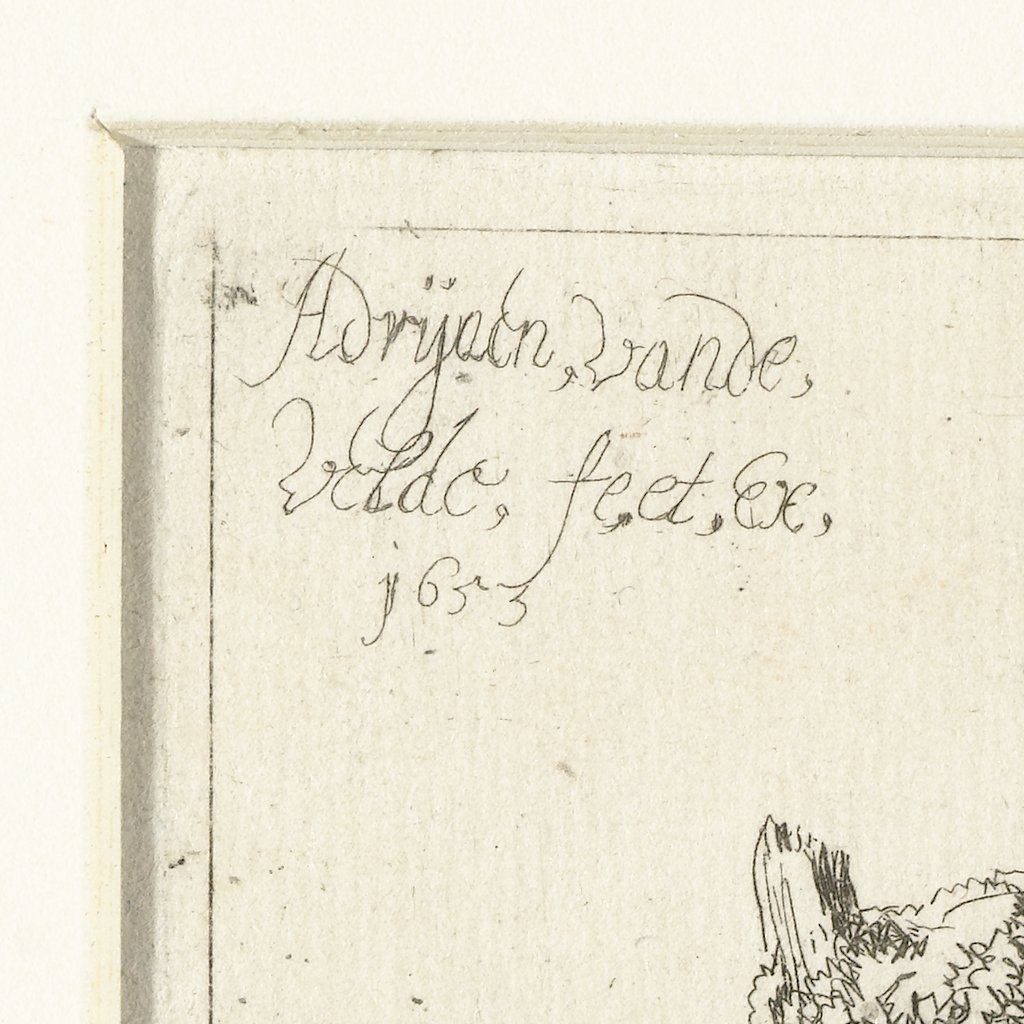 Adrijaen, vande,
Velde, fe,et,Ex,
j653